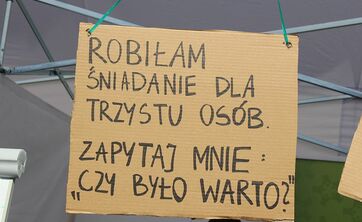 ROBIŁAM
ŚNIADANIE DLA
TRZYSTU OSÓB.
ZAPYTAJ MNIE:
„CZY BYŁO WARTO?"